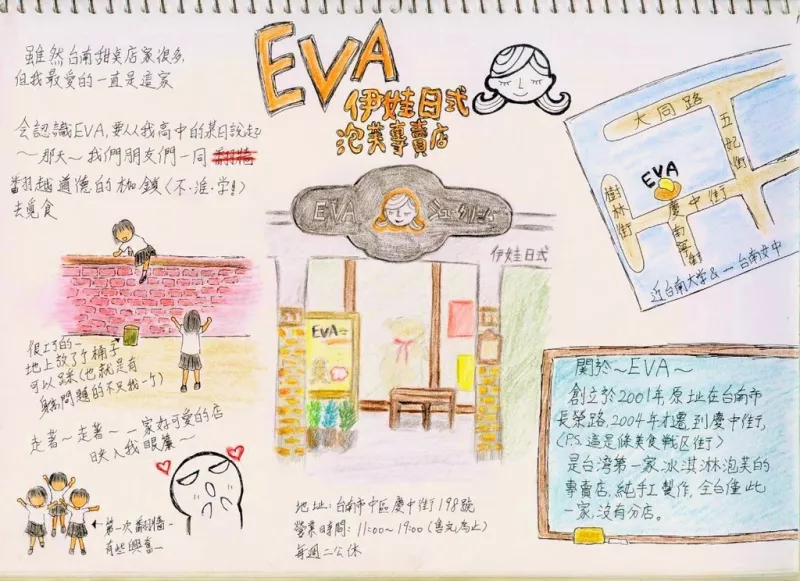 雖然台南甜桌店家很多,
但我最愛的一直是這家
會認識EVA,要從我高中的某日說起
～那天～我們朋友們一同
翻越道德的枷鎖(不·准·学!)
去覓食
EVA
伊娃日式
泡芙專賣店
EVA シュークリーム
伊娃日式
EVA
大同路
五妃街
EVA
樹林街
慶中街
近台南大學&－台南女中
很巧的－
地上放了个桶子
可以踩(也就是有
走著～走著～一家好可愛的店
映入我眼簾～
第一次翻牆-
有些興奮－
地址:台南市中區慶中街198號
營業時間:11:00～19:00(售完為止)
每週二公休
關於～EVA～
創立於2001年,原址在台南市
長榮路,2004年才遷到慶中街,
(P.S.這是條美食戰区街)
是台湾第一家冰淇淋泡芙的
專賣店,純手工製作,全台僅此
一家,沒有分店。